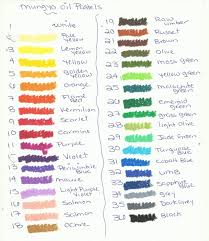 Mungyo Oil Pastels
1 White
2 Pale yellow
3 Lemon yellow
4 yellow
5 Golden yellow
6 Orange
7 Flame Red
8 Vermilion
9 Scarlet
10 Carmine
11 Purple
Violet
Blue
13 Light Purple Violet
16 Salmon
17 Salmon
18 Ochre
19 Raw umber
20 Russet
21 Brown
22 Olive
24 Moss green
23 Yellow green
25 Malachite green
26 Emerald green
27 Grass green
28 Light Olive
29 Jade Green
30 Turquoise Blue
31 Cobalt Blue
33 Blue
Dark grey
Black